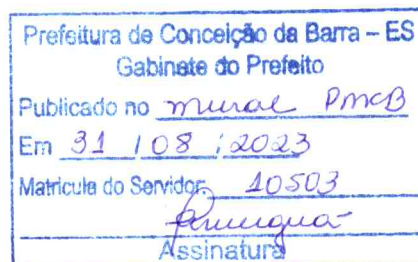 Prefeitura de Conceição da Barra – ES
Gabinete do Prefeito
Publicado no mural PMCB
Em 31 / 08 / 2023
Matricula do Servidor 10503
Assinatura